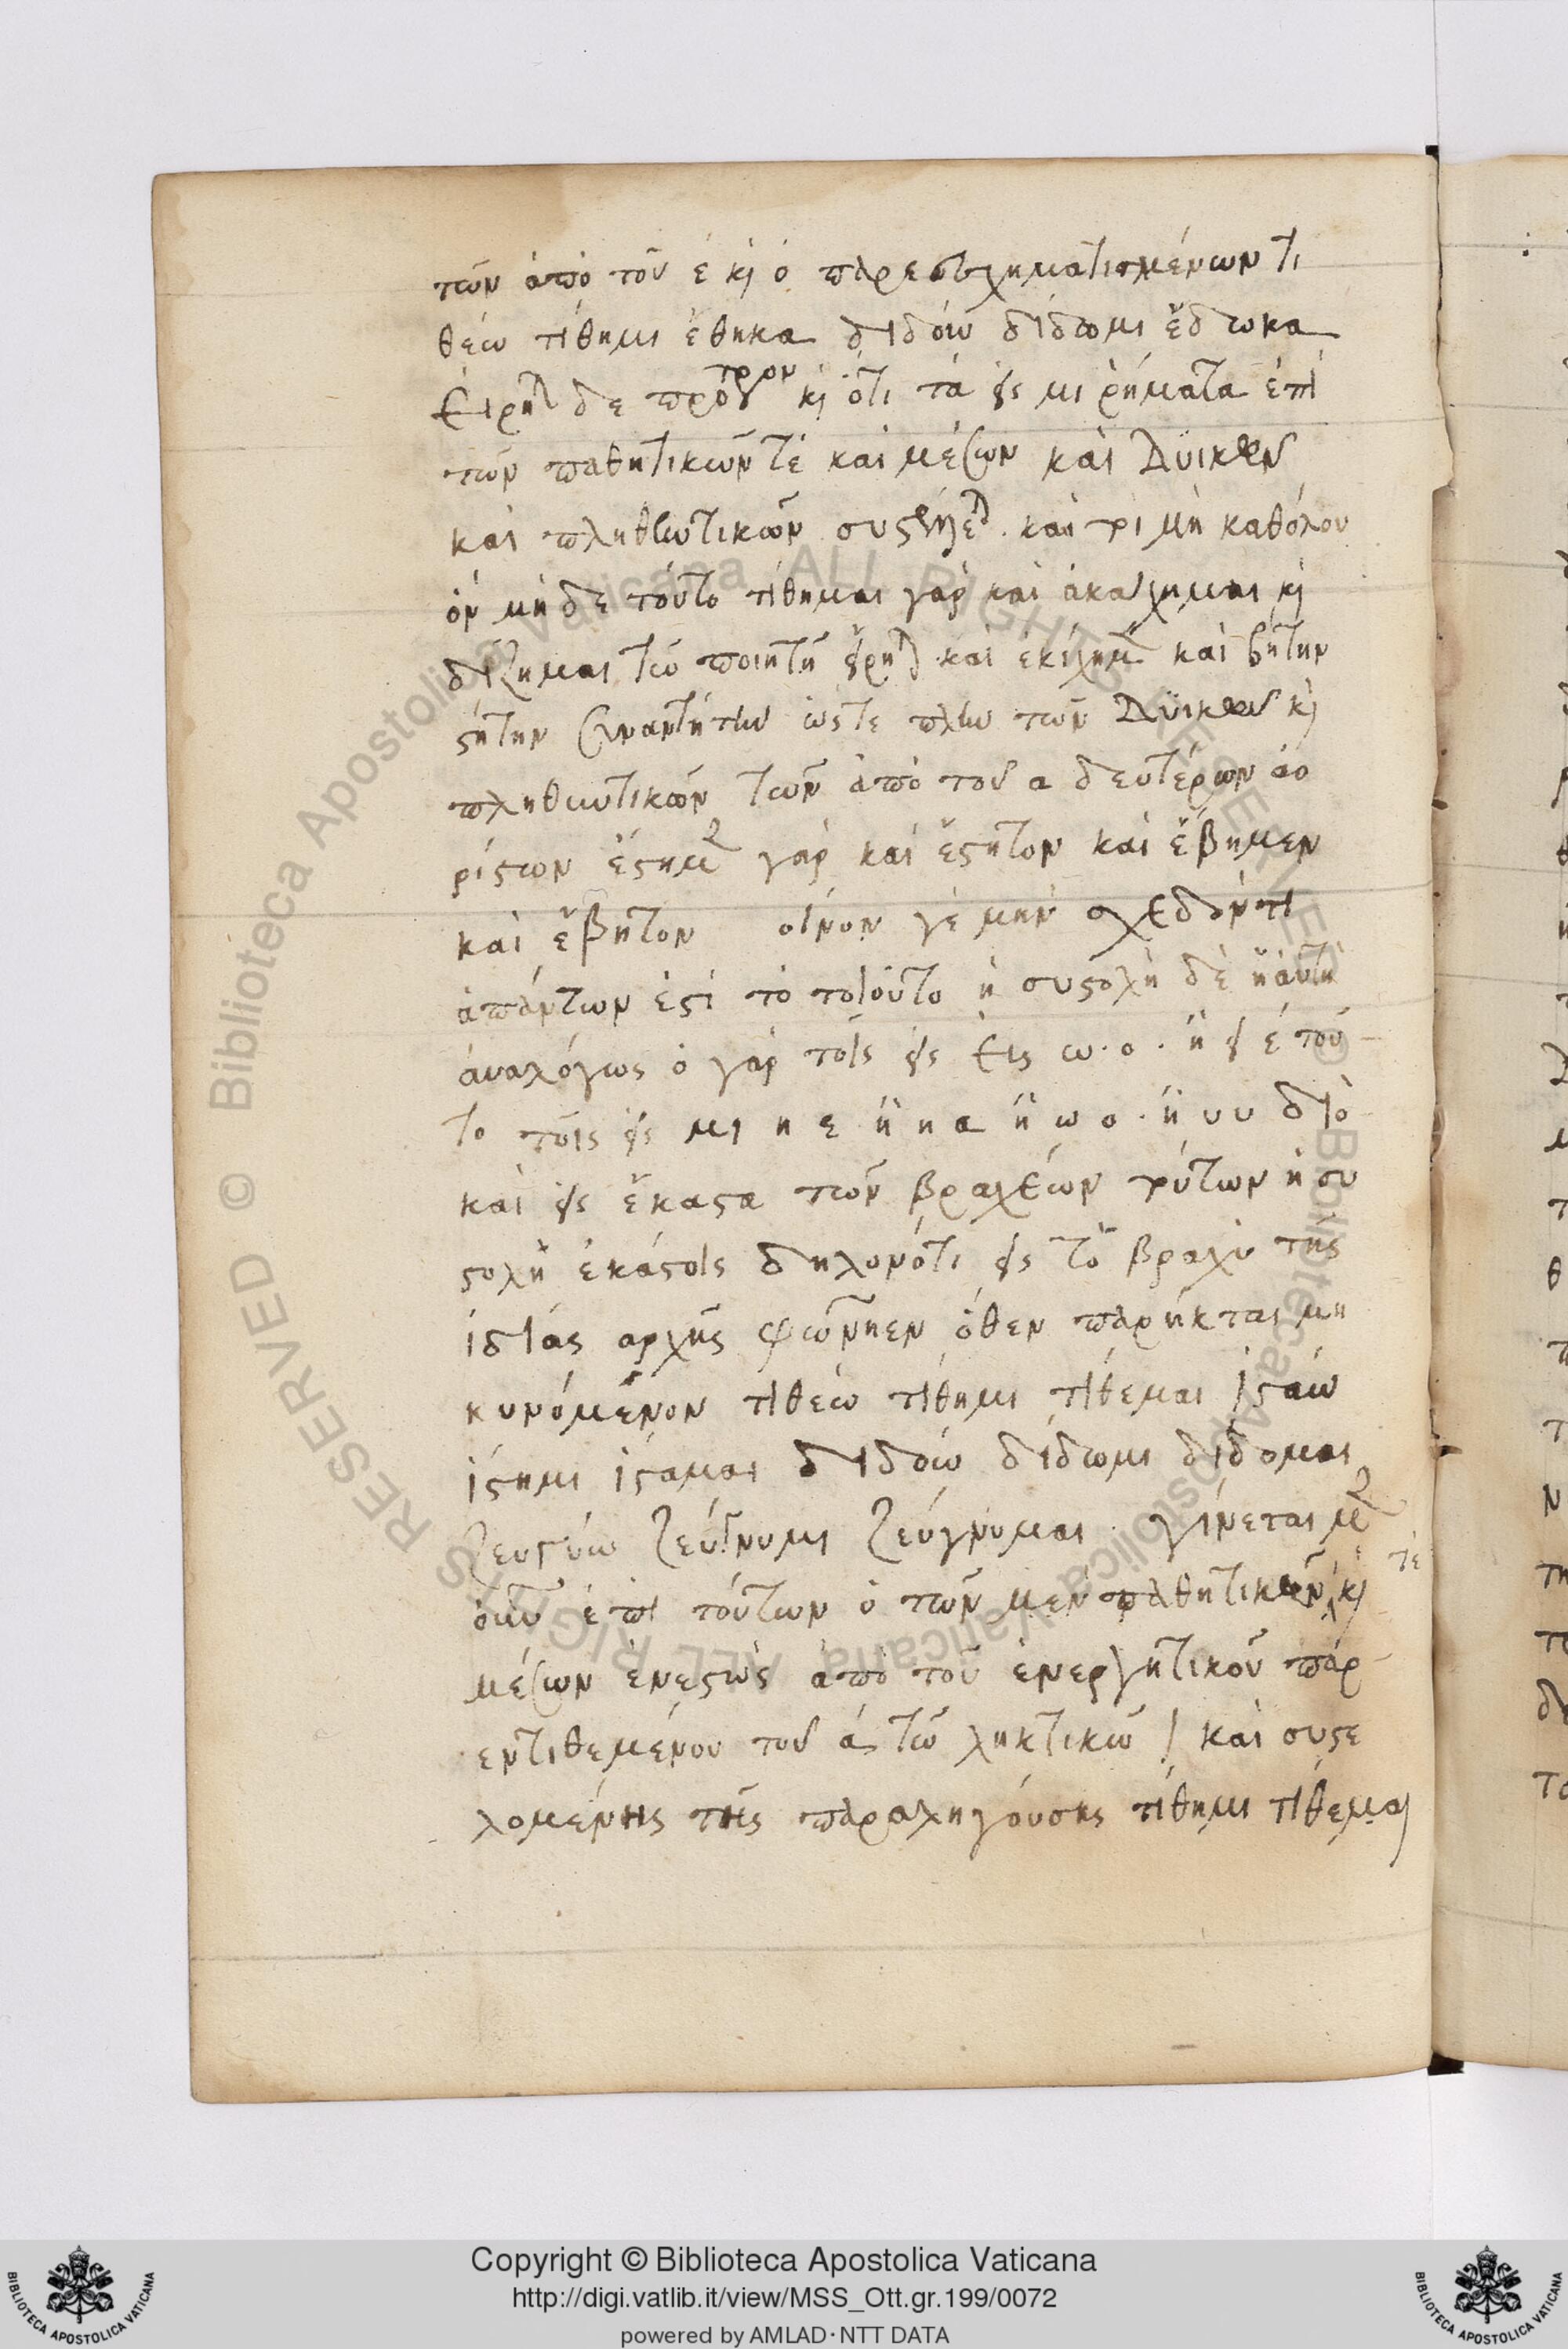 τῶν ἀπὸ τοῦ ε κ ὸ παρεσχηματισμένων τι
θέω τίθημι ἔθηκα διδόω δίδωμι ἔδωκα
Εἴρηται δὲ πρότερον κ ὅτι τὰ εἰς μι ῥήματα ἐπὶ
τῶν παθητικῶν τὲ καὶ μέσων καὶ Δυικῶν
καὶ πληθυντικῶν συστέλλεται καὶ τοι μὴ καθόλου
ὂν μὴ δὲ τούτο τίθημαι γὰρ καὶ ἀκάχημαι κ
δίζημαι τῶ ποιητῆ εἴρηται καὶ ἐκίχημεν καὶ βήτην
στήτην συναντήτην ὥστε πλὴν τῶν Δυικῶν κ
πληθυντικῶν τῶν ἀπὸ τοῦ α δευτέρων ἀο
ρίστων ἔστημεν γὰρ καὶ ἔστητον καὶ ἔβημεν
καὶ ἔβητον οἷνον γὲ μὴν σχεδόν τι
ἁπάντων ἐστὶ τὸ τοιοῦτο ἡ συστολὴ δὲ ἡ αὐτὴ
ἀναλόγως ὁ γὰρ τοῖς εἰς Εις ω . ο . ἢ ε τοῦ
το τοῖς εἰς μι η ε ἢ η α ἢ ω ο . ἢ υ υ διὸ
καὶ εἰς ἕκαστα τῶν βραχέων τούτων ἡ συ
στολὴ ἑκάστοις δηλονότι εἰς τὸ βραχὺ τῆς
ἰδίας ἀρχῆς φωνῆεν ὅθεν παρῆκται μη
κυνόμενον τιθέω τίθημι τίθεμαι ἱστάω
ἵστημι ἵσταμαι διδόω δίδωμι δίδομαι
ζευγνύω ζεύγνυμι ζεύγνυμαι . γίνεται μεν
οὖν ἐπὶ τούτων ὁ τῶν μὲν παθητικῶν τὲ κ
μέσων ἐνεστὼς ἀπὸ τοῦ ἐνεργητικοῦ παρ
εντιθεμένου τοῦ ά τῶ ληκτικῶ ι καὶ συστε
λομένης τῆς παραληγούσης τίθημι τίθεμαι
Copyright © Biblioteca Apostolica Vaticana
http://digi.vatlib.it/view/MSS_Ott.gr.199/0072
powered by AMLAD·NTT DATA